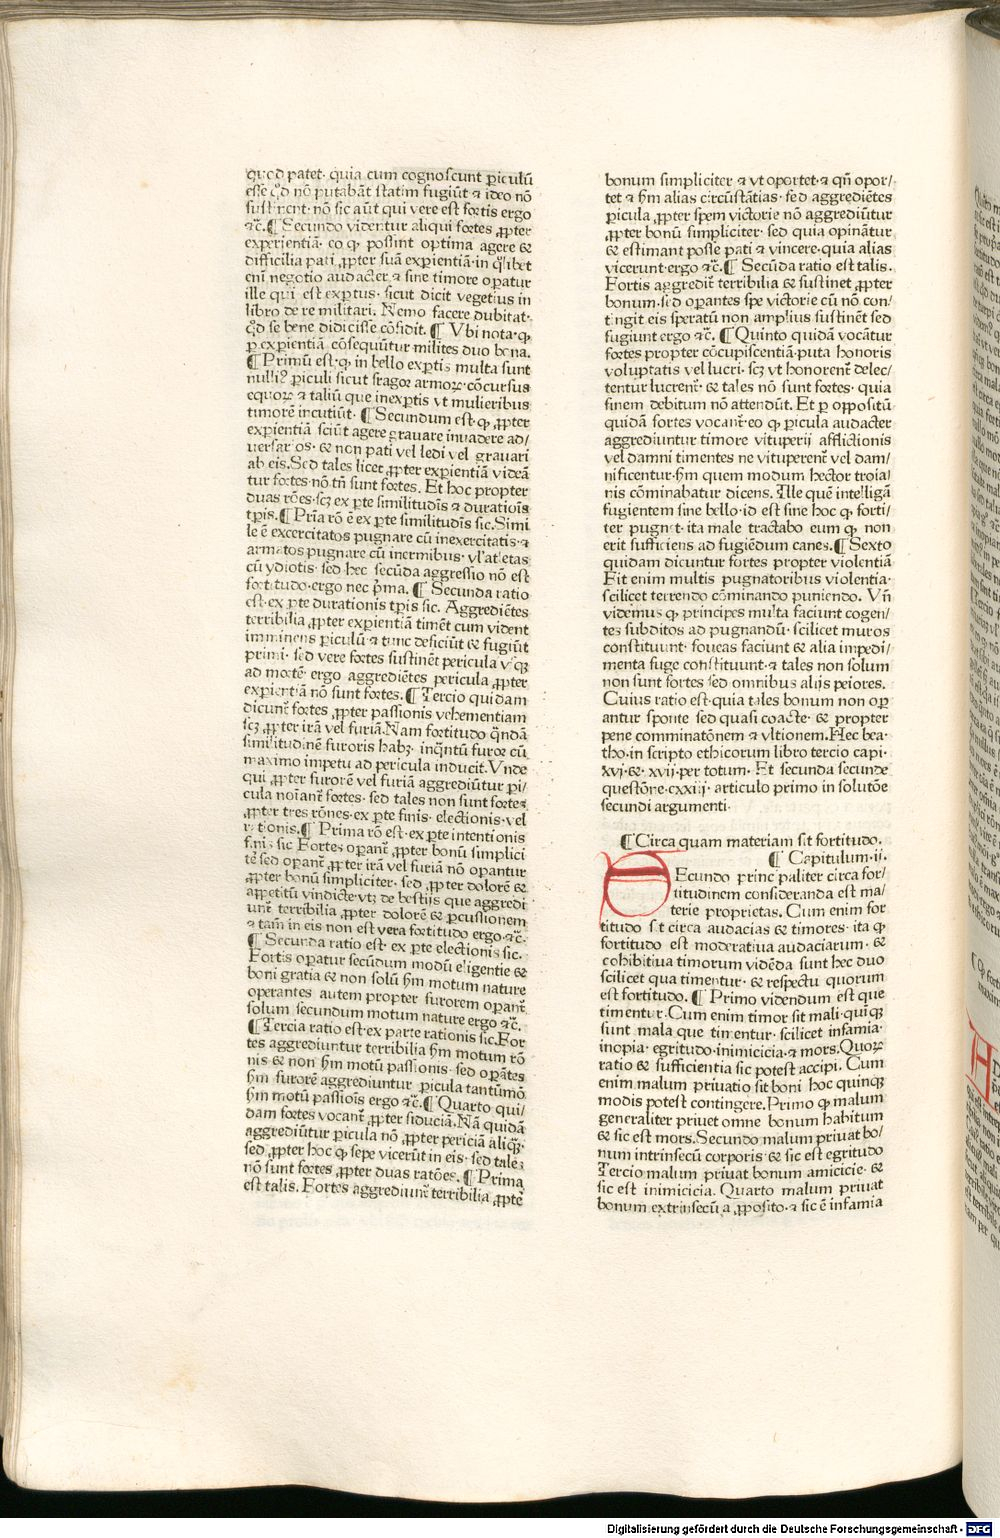 quod patet· quia cum cognoscunt ꝑiculū
esse ꝙd nō putabāt statim fugiūt ⁊ ideo nō
sustinent· nō sic aūt qui vere est fortis ergo
⁊c̄.¶ Secundo videntur aliqui fortes ꝓpter
experientiā· eo ꝙ possint optima agere &
difficilia pati ꝓpter suā exꝑientiā· in qͥlibet
eni negotio audacter ⁊ sine timore oꝑatur
ille qui est exꝑtus· sicut dicit vegetius in
libro de re militari. Nemo facere dubitat·
ꝙd se bene didicisse cōfidit. ¶ Vbi nota· ꝙ
ꝑ exꝑientiā cōsequūtur milites duo bona.
¶ Primū est· ꝙ in bello exꝑtis multa sunt
nulliꝰ ꝑiculi sicut fragor armoꝝ· cōcursus
equoꝝ ⁊ taliū que inexꝑtis vt mulieribus
timorē incutiūt· ¶ Secundum est· ꝙ ꝓpter
exꝑientiā sciūt agere gravare invadere ad/
uersarios· & non pati vel ledi vel gravari
ab eis. Sed tales licet ꝓpter exꝑientiā videā
tur fortes nō tn̄ sunt fortes. Et hoc propter
duas rōes· scꝫ ex ꝑte similitudīs ⁊ duratiōis
tꝑis. ¶ Pr̄ia rō ē ex ꝑte similitudīs sic. Simi
le ē excercitatos pugnare cū inexercitatis· ⁊
armatos pugnare cū inermibus· vl' atletas
cū ydiotis· sed hec secūda aggressio nō est
fortitudo· ergo nec pͥma. ¶ Secunda ratio
est· ex ꝑte durationis tꝑis sic. Aggrediētes
terribilia ꝓpter exꝑientiā timēt cum vident
imminens ꝑiculū ⁊ tunc deficiūt & fugiūt
primi· sed vere fortes sustinēt pericula vsqꝫ
ad mortē· ergo aggrediētes pericula ꝓpter
exꝑientiā nō sunt fortes. ¶ Tercio quidam
dicunt̄ fortes ꝓpter passionis vehementiam
scꝫ ꝓpter irā vel furiā. Nam fortitudo qͣndā
similitudinē furoris habꝫ· inqͣntū furor cū
maximo impetu ad pericula inducit. Vnde
qui ꝓpter furorē vel furiā aggrediūtur ꝑi/
cula noīant̄ fortes· sed tales non sunt fortes
ꝓpter tres rōnes· ex ꝑte finis· electionis· vel
rationis. ¶ Prima rō est· ex ꝑte intentionis
finis sic Fortes oꝑant̄ ꝓpter bonū simplici
tē sed oꝑant̄ ꝓpter irā vel furiā nō oꝑantur
ꝓpter bonū simpliciter· sed ꝓpter dolorē &
appetitū vindicte· vtꝫ de bestijs que aggredi
unt̄ terribilia ꝓpter dolorē & ꝑcussionem
⁊ tam̄ in eis non est vera fortitudo ergo· ⁊c̄.
¶ Secunda ratio est· ex ꝑte electionis sic.
Fortis oꝑatur secūdum modū eligentie &
boni gratia & non solū ẜm motum nature
operantes autem propter furorem oꝑant̄
solum secundum motum nature ergo ⁊c̄.
¶ Tercia ratio est· ex parte rationis sic. For
tes aggrediuntur terribilia ẜm motum rō
nis & non ẜm motū passionis· sed oꝑātes
ẜm furorē aggrediuntur ꝑicula tantūmō
ẜm motū passiōis ergo ⁊c̄. ¶ Quarto qui/
dam fortes vocant̄ ꝓpter fiduciā. Nā quidā
aggrediūtur ꝑicula nō ꝓpter periciā aliqͣ·
sed ꝓpter hoc ꝙ sepe vicerūt in eis· sed tales
nō sunt fortes ꝓpter duas ratōes. ¶ Prima
est talis. Fortes aggrediunt̄ terribilia ꝓpte
bonum simpliciter ⁊ vt oportet· ⁊ qn̄ opor/
tet ⁊ ẜm alias circūstātias· sed aggrediētes
ꝑicula ꝓpter spem victorie nō aggrediūtur
ꝓpter bonū simpliciter· sed quia opinātur
& estimant posse pati ⁊ vincere· quia alias
vicerunt· ergo ⁊c̄. ¶ Secūda ratio est talis.
Fortis aggredit̄ terribilia & sustinet ꝓpter
bonum· sed oꝑantes spe victorie cū nō con/
tingit eis speratū non amplius sustinēt sed
fugiunt ergo ⁊c̄. ¶ Quinto quidā vocātur
fortes propter cōcupiscentiā· puta honoris
voluptatis vel lucri· scꝫ vt honorent̄ delec/
tentur lucrent̄· & tales nō sunt fortes· quia
finem debitum nō attendūt. Et ꝑ oppositū
quidā fortes vocant̄· eo ꝙ ꝑicula audacter
aggrediuntur timore vituperij afflictionis
vel damni timentes ne vituperent̄ vel dam/
nificentur· ẜm quem modum hector troia/
nis cōminabatur dicens. Ille quē intelligā
fugientem sine bello· id est sine hoc ꝙ forti/
ter pugnet· ita male tractabo eum ꝙ non
erit sufficiens ad fugiēdum canes. ¶ Sexto
quidam dicuntur fortes propter violentiā
Fit enim multis pugnatoribus violentia·
scilicet terrendo cōminando puniendo. Vn̄
videmus ꝙ principes multa faciunt cogen/
tes subditos ad pugnandū· scilicet muros
constituunt· foueas faciunt & alia impedi/
menta fuge constituunt· ⁊ tales non solum
non sunt fortes sed omnibus alijs peiores.
Cuius ratio est· quia tales bonum non oꝑ
antur sponte sed quasi coacte· & propter
pene comminatōnem ⁊ vltionem. Hec bea·
tho. in scripto ethicorum libro tercio capi·
xvj· &· xvij· per totum· Et secunda secunde
questōne· cxxiij· articulo primo in solutōe
secundi argumenti·
¶ Circa quam materiam sit fortitudo.
¶ Capitulum· ii.
SEcundo principaliter circa for/
titudinem consideranda est ma/
terie proprietas. Cum enim for
titudo sit circa audacias & timores· ita ꝙ
fortitudo est moderatiua audaciarum· &
cohibitiua timorum vidēda sunt hec duo
scilicet qua timentur· & respectu quorum
est fortitudo. ¶ Primo videndum est que
timentur. Cum enim timor sit mali· quīqꝫ
sunt mala que timentur· scilicet infamia·
inopia· egritudo· inimicicia· ⁊ mors. Quoꝝ
ratio & sufficientia sic potest accipi. Cum
enim malum priuatio sit boni hoc quinqꝫ
modis potest contingere. Primo ꝙ malum
generaliter priuet omne bonum habitum
& sic est mors. Secundo malum priuat bo/
num intrinsecū corporis· & sic est egritudo
Tercio malum priuat bonum amicicie· &
sic est inimicicia. Quarto malum priuat
bonum extrinsecū a ꝓposito· ⁊ sic ē infamia
Digitalisierung gefördert durch die Deutsche Forschungsgemeinschaft - DFG